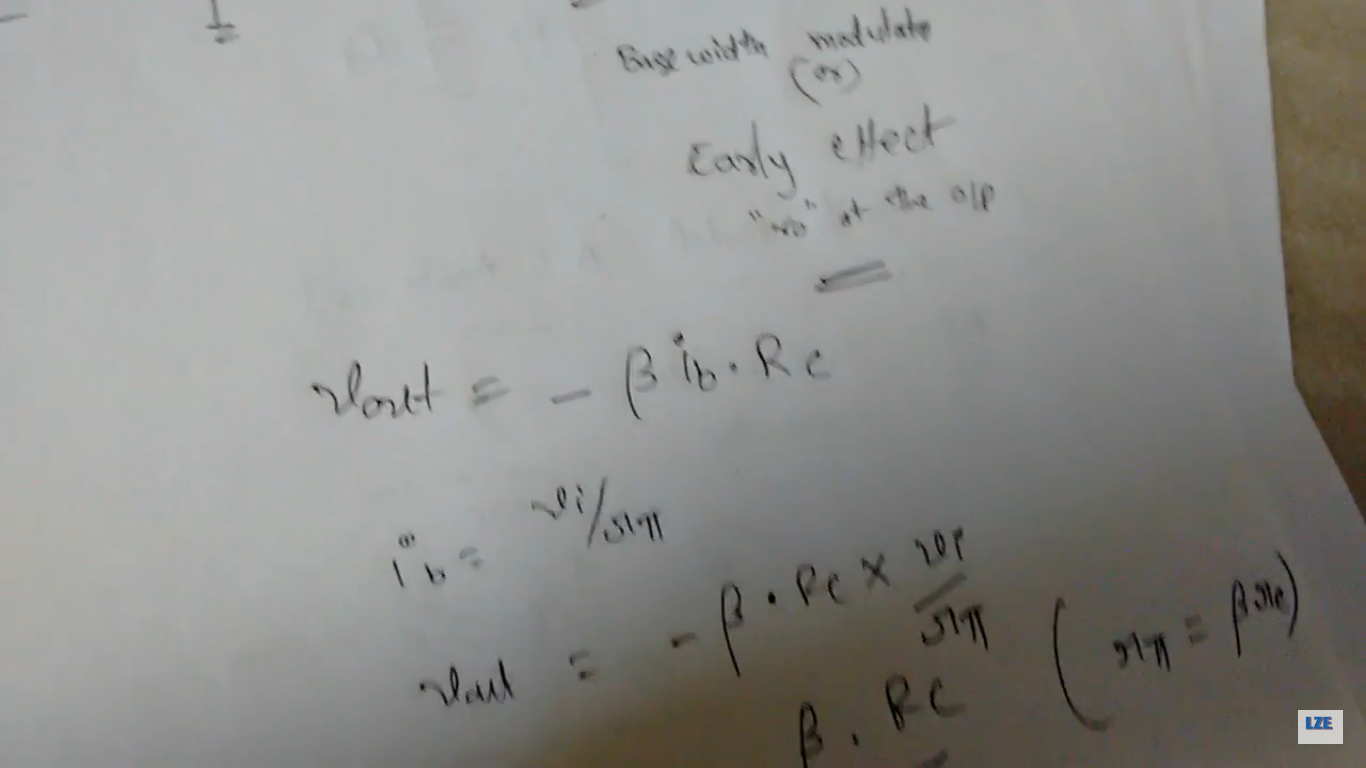 Base width modulate
(or)
Early effect
"ro" at the o/p
vout = - β ib . RC
ib = vi/rπ
vout = - β . RC x vi/rπ (rπ = β re)
β . RC
LZE